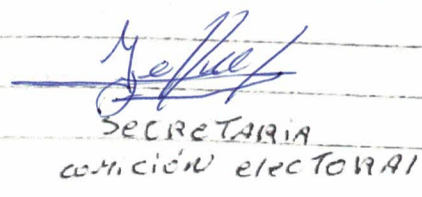 SecReTARiA
comición elecTORAl